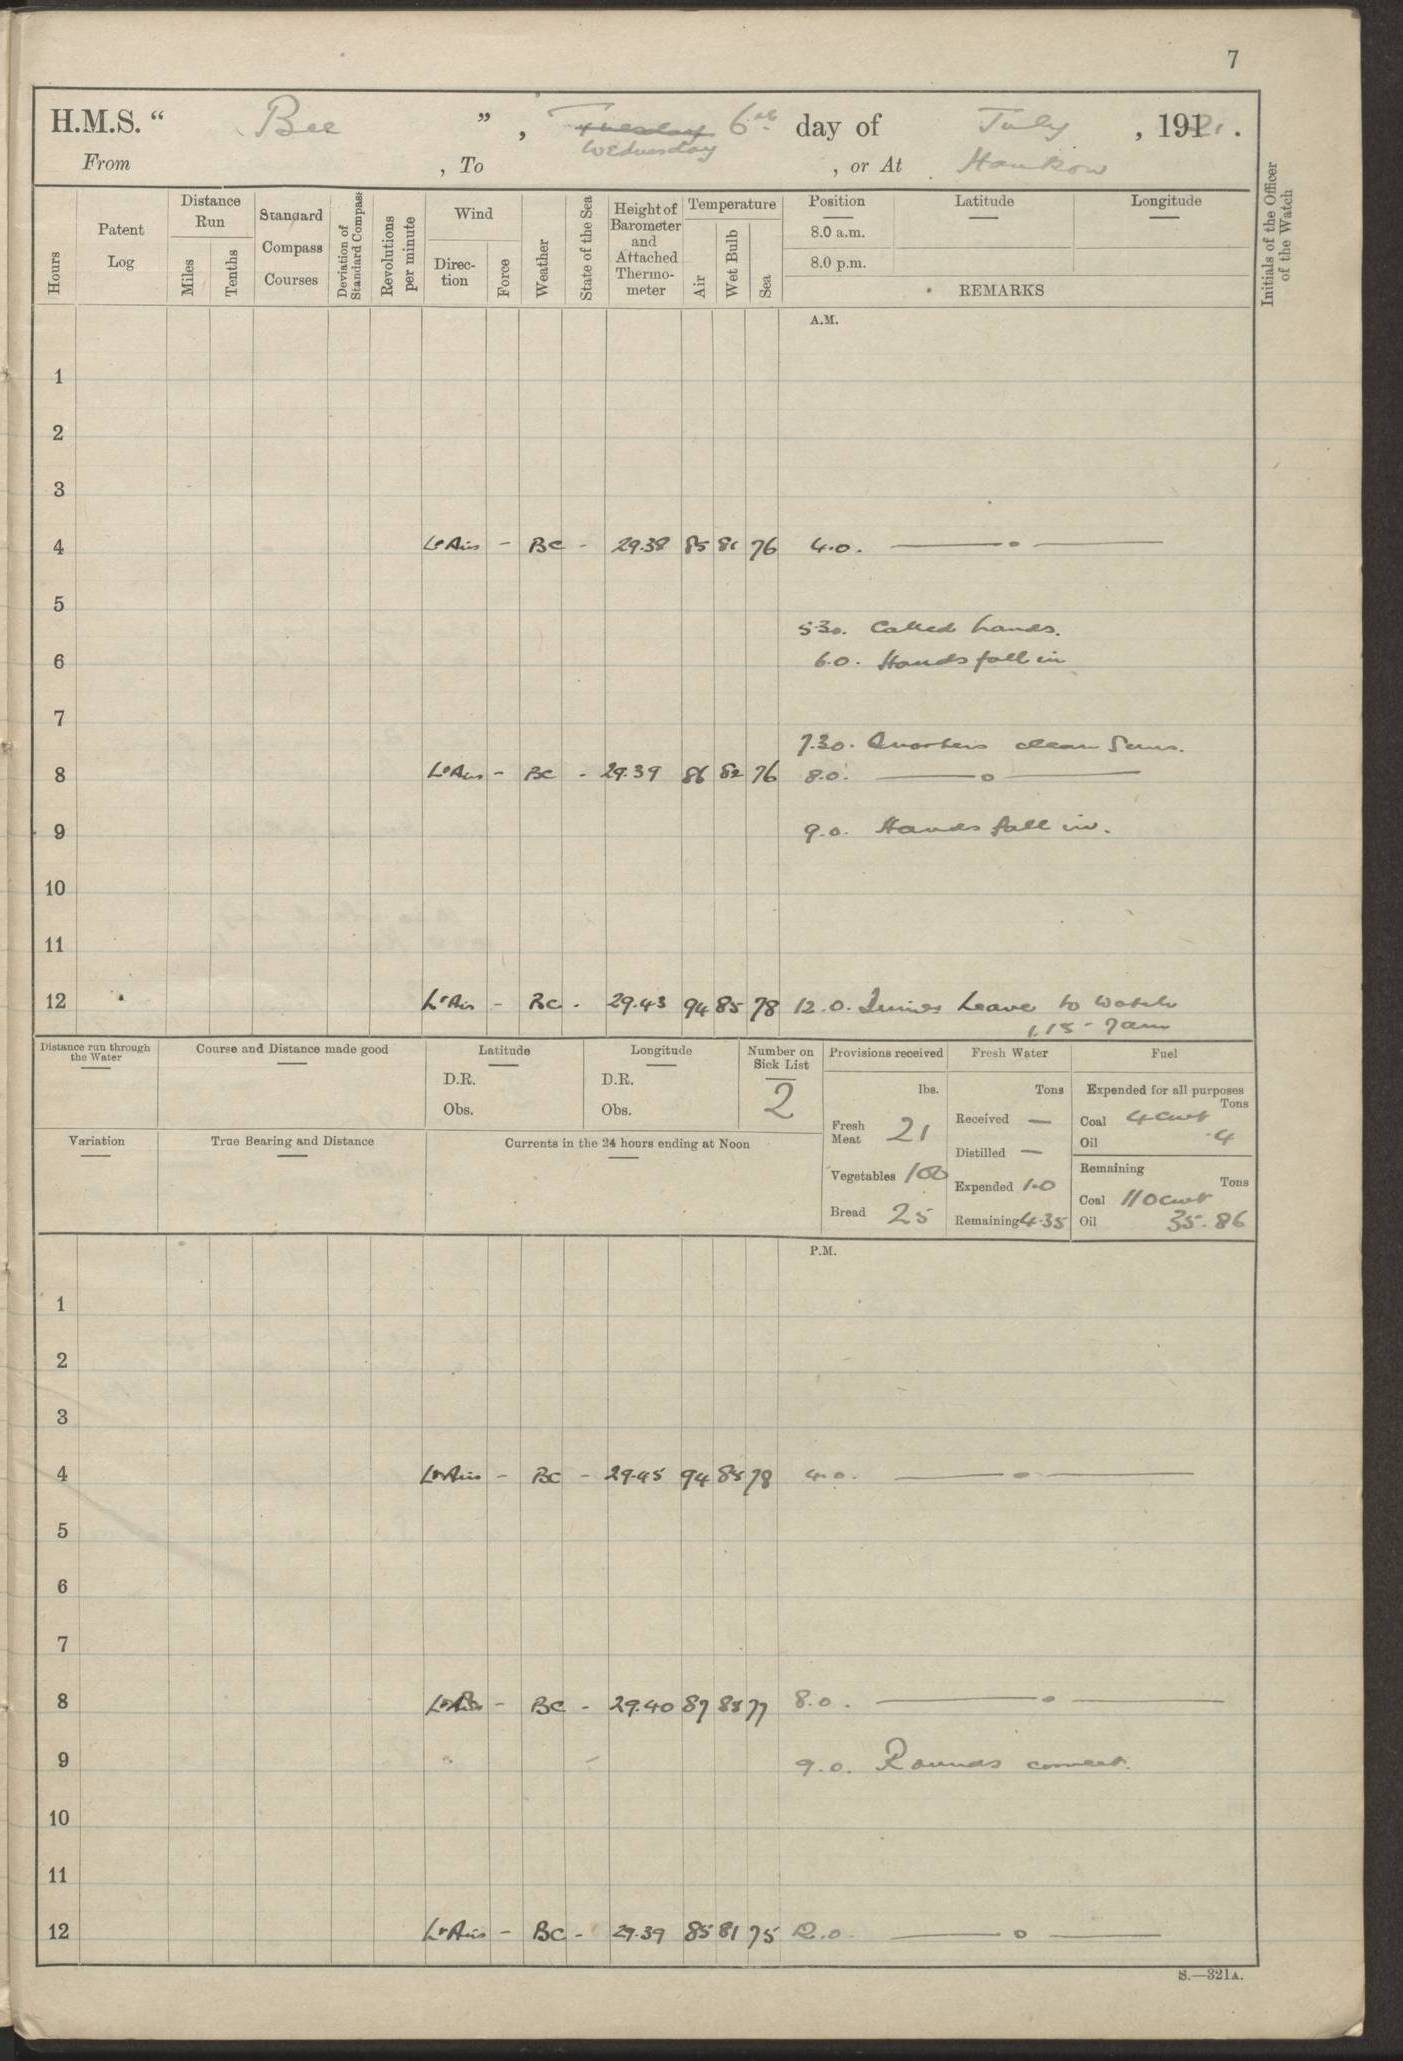 7
H.M.S. “ Bee ” , Tuesday 6th day of July , 1921 .
Wednesday
From , To , or At Hankow
Hours
Patent Log
Distance Run
Miles
Tenths
Standard Compass Courses
Deviation of Standard Compass
Revolutions per minute
Wind
Direction
Force
Weather
State of the Sea
Height of Barometer and Attached Thermometer
Temperature
Air
Wet Bulb
Sea
Position
8.0 a.m.
8.0 p.m.
Latitude
Longitude
REMARKS
Initials of the Officer of the Watch
A.M.
1
2
3
4 Lt Airs - BC - 29.38 85 81 76 4.0. —o—
5
5.30. Called hands.
6 6.0. Hands fall in
7
7.30. Quarters clean Guns.
8 Lt Airs - BC - 29.39 86 82 76 8.0. —o—
9 9.0. Hands fall in.
10
11
12 Lt Airs - BC - 29.43 94 85 78 12.0. Leave to watch
1.15 - 7am
Distance run through the Water
Course and Distance made good
Latitude
D.R.
Obs.
Longitude
D.R.
Obs.
Number on Sick List
2
Provisions received
lbs.
Fresh Meat 21
Vegetables 100
Bread 25
Fresh Water
Tons
Received —
Distilled —
Expended 1.0
Remaining 4.35
Fuel
Expended for all purposes
Tons
Coal 4 cwt
Oil .4
Remaining
Tons
Coal 110 cwt
Oil 35.86
Variation
True Bearing and Distance
Currents in the 24 hours ending at Noon
P.M.
1
2
3
4 Lt Airs - BC - 29.45 94 85 78 4.0. —o—
5
6
7
8 Lt Airs - BC - 29.40 87 85 77 8.0. —o—
9 9.0. Rounds correct.
10
11
12 Lt Airs - BC - 29.39 85 81 75 12.0. —o—
S.—321A.